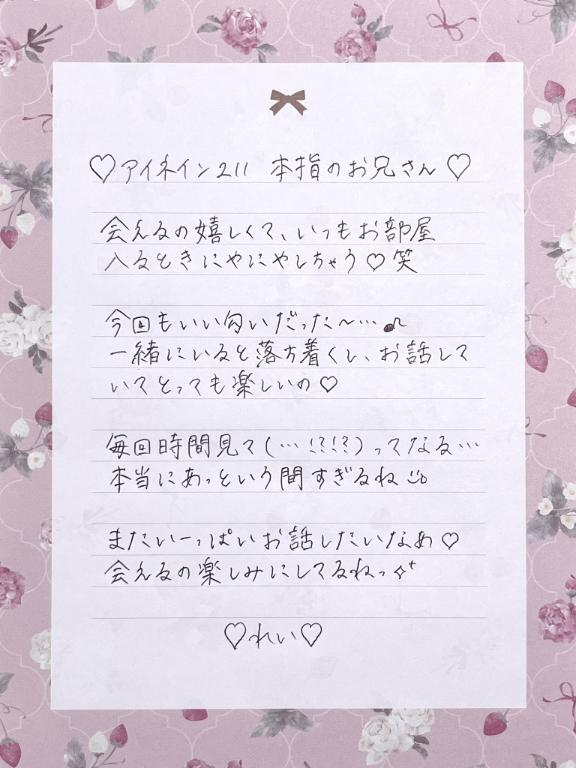 ♡アイネイン211 本指のお兄さん♡
会えるの嬉しくて、いつもお部屋
入るときにやにやしちゃう♡笑
今回もいい匂いだった〜…♪
一緒にいると落ち着くし、お話して
いてとっても楽しいの♡
毎回時間見て(…!?!?)ってなる…
本当にあっという間すぎるね
またいーっぱいお話したいなあ♡
会えるの楽しみにしてるねっ✧⁺
♡れい♡